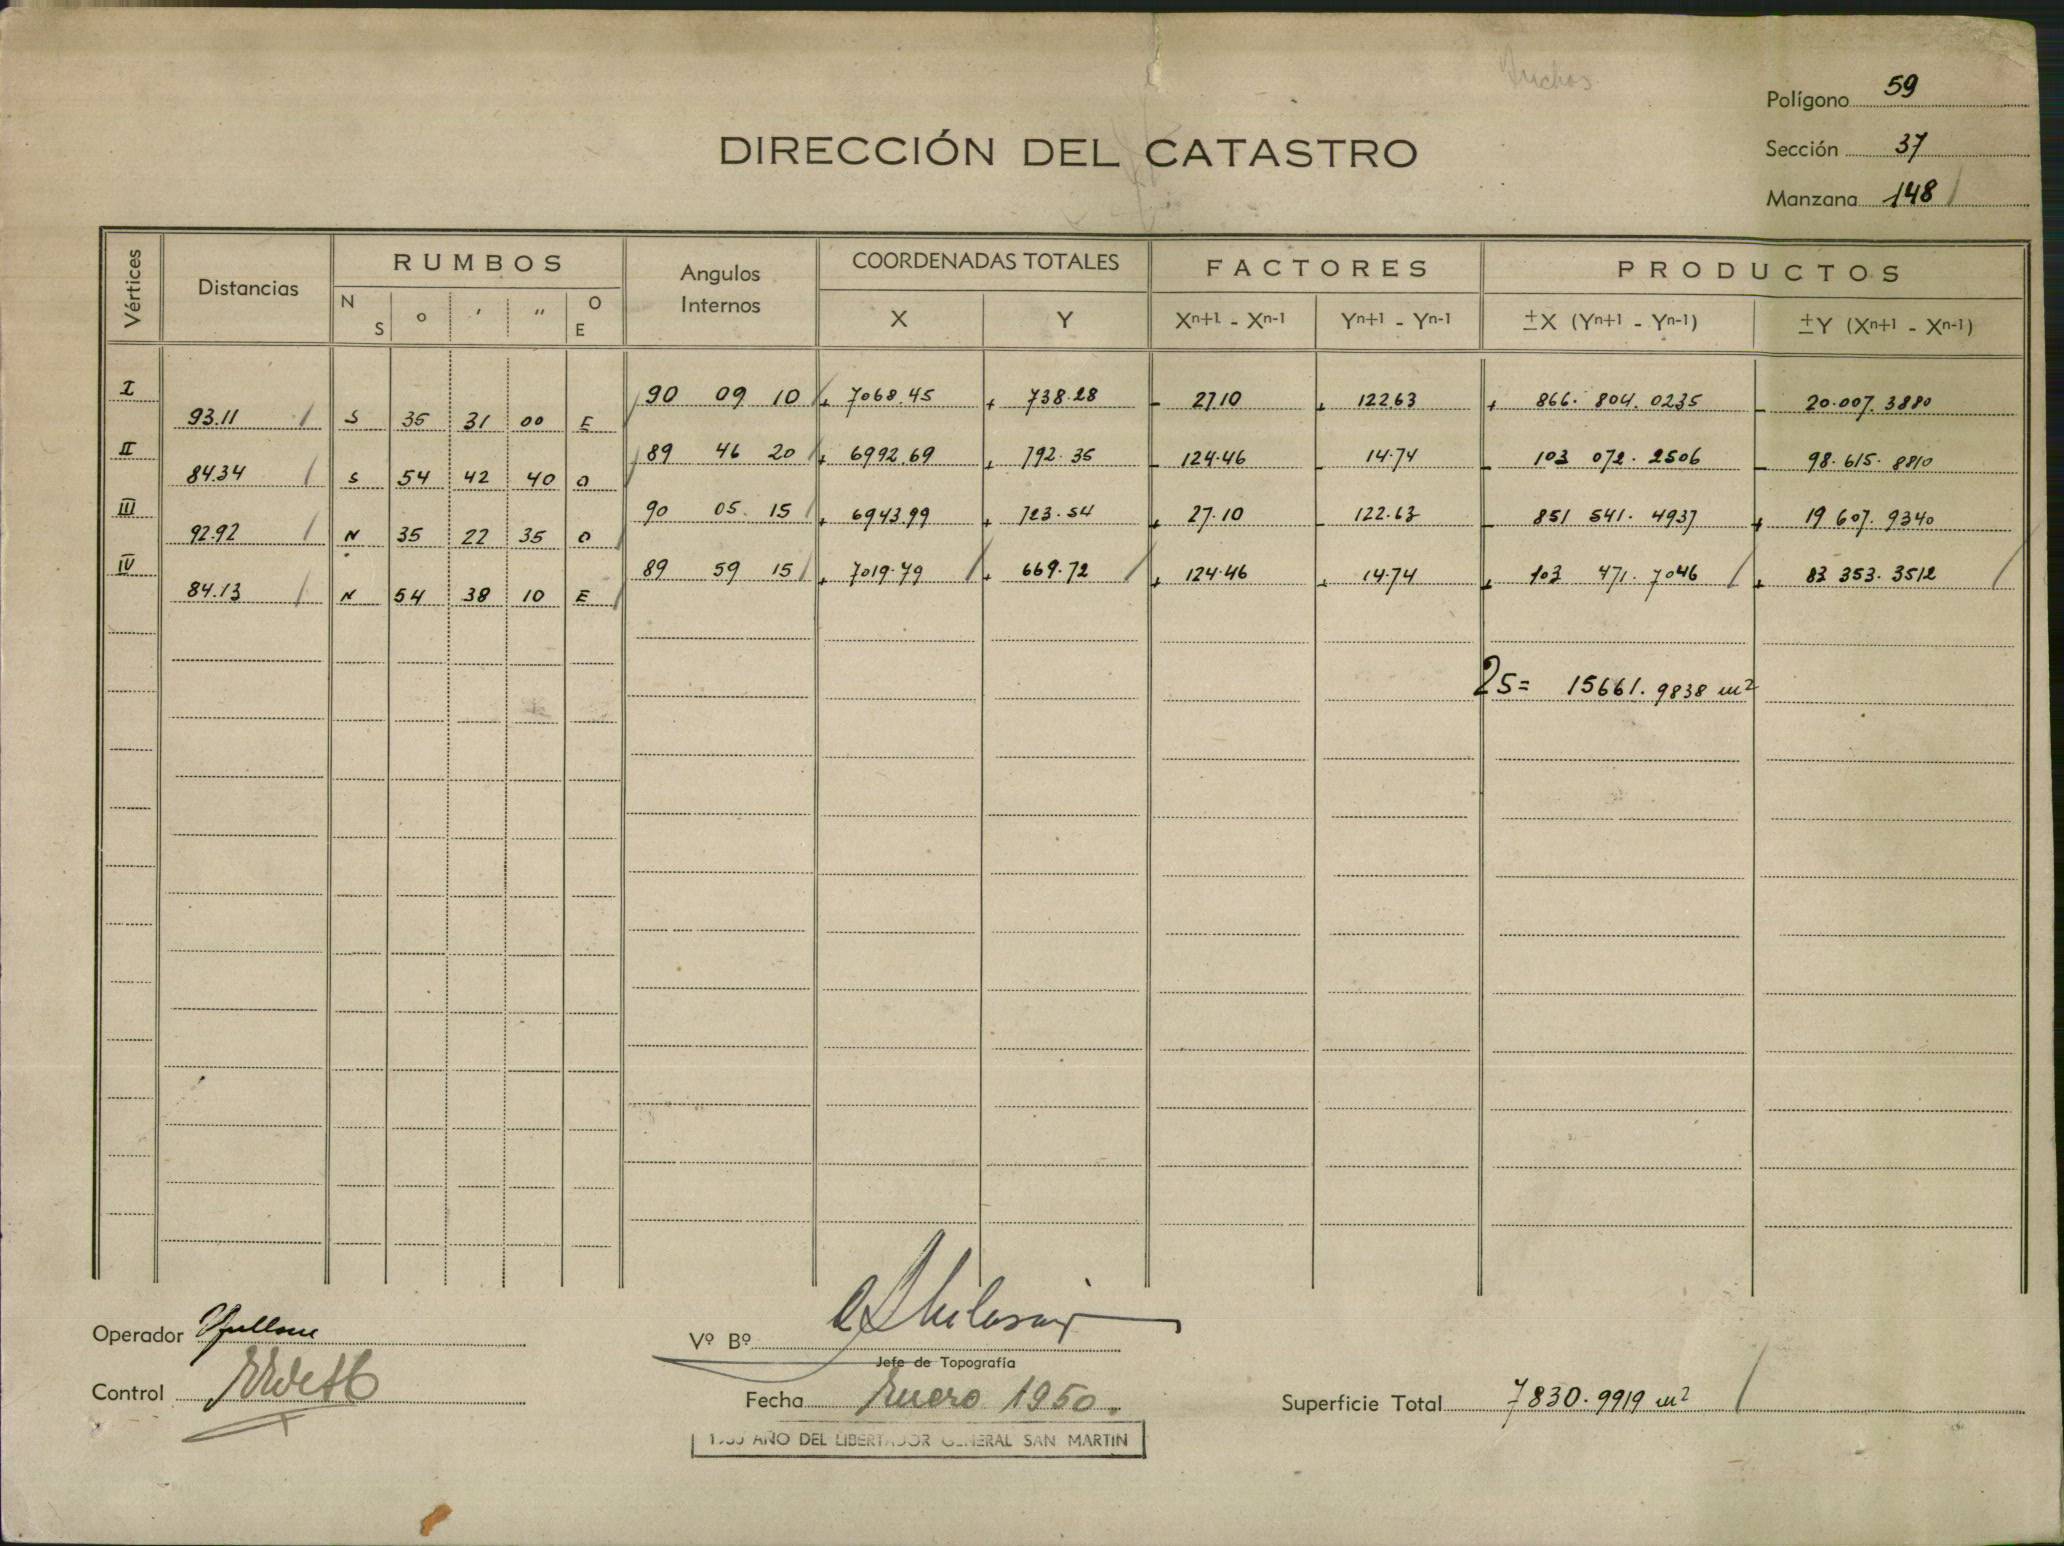 Polígono 59
DIRECCIÓN DEL CATASTRO
Sección 37
Manzana 148
Vértices Distancias RUMBOS Angulos Internos COORDENADAS TOTALES FACTORES PRODUCTOS
N S o ' " O E X Y Xn+1 - Xn-1 Yn+1 - Yn-1 ±X (Yn+1 - Yn-1) ±Y (Xn+1 - Xn-1)
I 90 09 10 + 7068.45 + 738.28 - 27.10 + 122.63 + 866.804.0235 - 20.007.3880
93.11 S 35 31 00 E
II 89 46 20 + 6992.69 + 792.35 - 124.46 - 14.74 - 103 072.2506 - 98.615.8810
84.34 S 54 42 40 O
III 90 05 15 + 6943.99 + 723.54 + 27.10 - 122.63 - 851 541.4937 + 19 607.9340
92.92 N 35 22 35 O
IV 89 59 15 + 7019.79 + 669.72 + 124.46 + 14.74 + 103 471.7046 + 83 353.3512
84.13 N 54 38 10 E
2S= 15661.9838 m²
Operador
Vº Bº
Jefe de Topografía
Control
Fecha Enero 1950.
Superficie Total 7830.9919 m²
AÑO DEL LIBERTADOR GENERAL SAN MARTIN